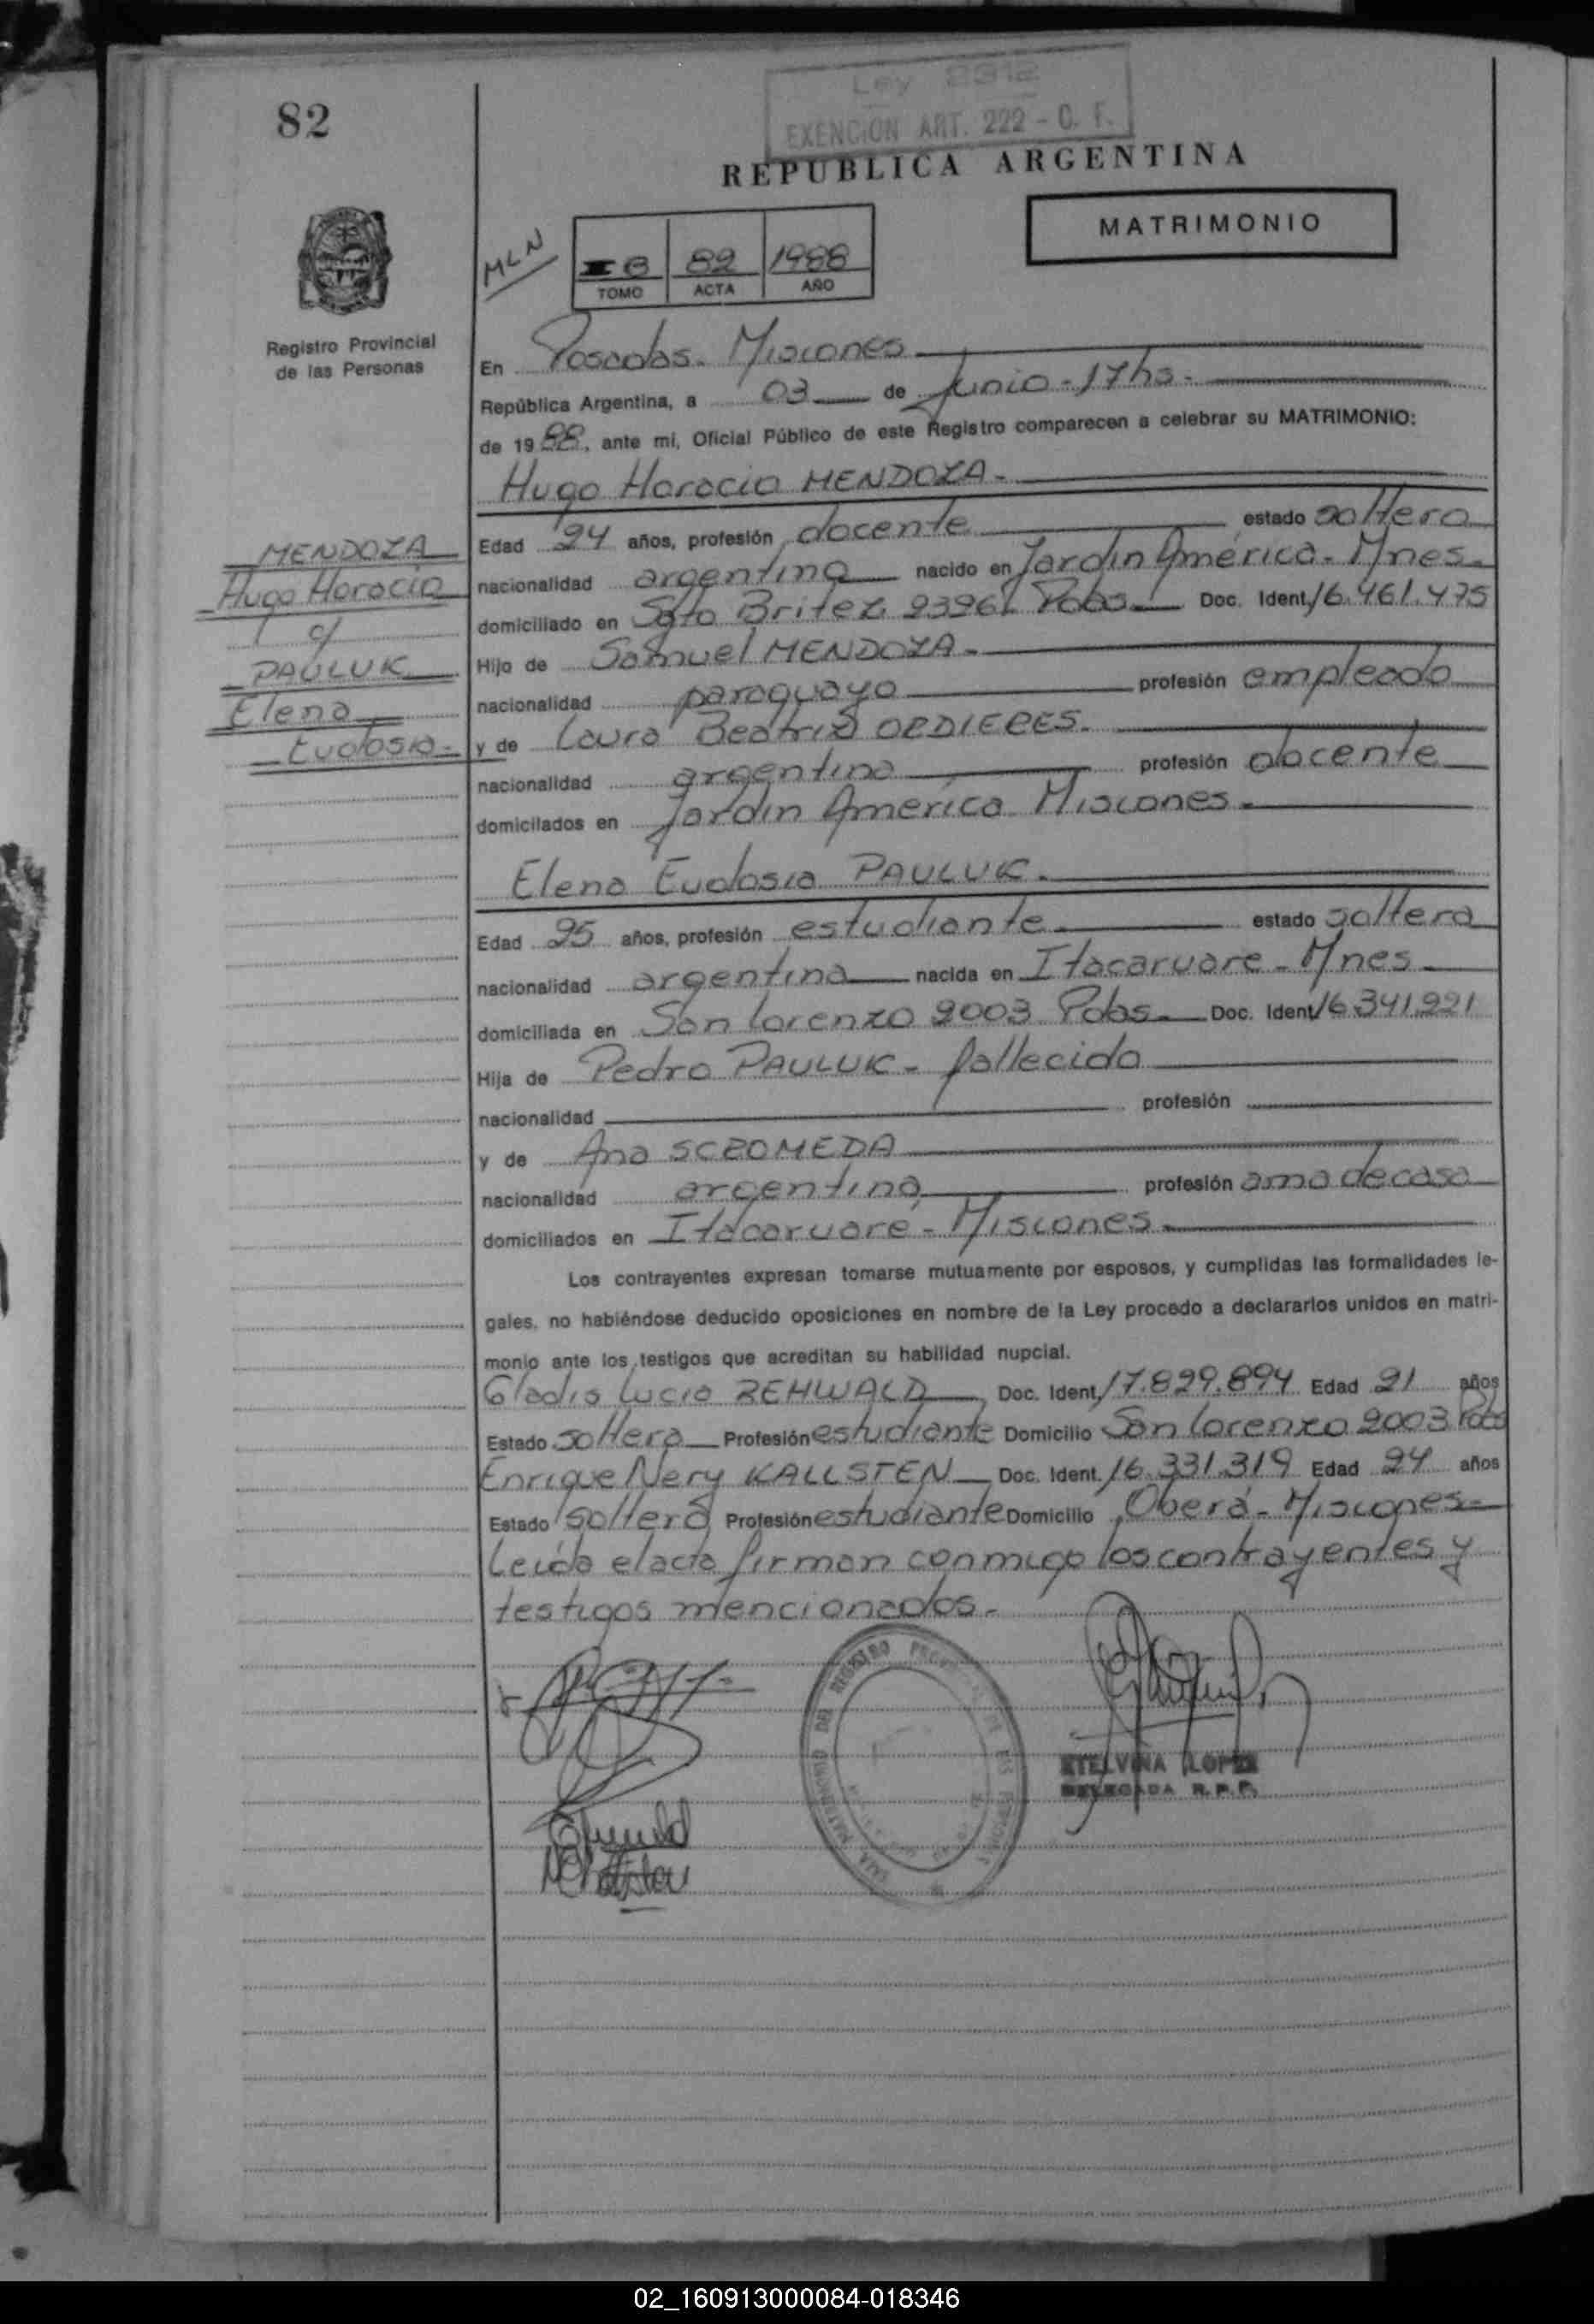 82
Ley 2312
EXENCION ART. 222 - C. F.
REPUBLICA ARGENTINA
MATRIMONIO
MLN
B 82 1988
TOMO ACTA AÑO
Registro Provincial
de las Personas
En Posadas. Misiones
República Argentina, a 03 de Junio - 17 hs.
de 1988, ante mi, Oficial Público de este Registro comparecen a celebrar su MATRIMONIO:
Hugo Horacio MENDOZA.
MENDOZA
Hugo Horacio
c/
PAULUK
Elena
Eudosia.
Edad 24 años, profesión docente estado soltero
nacionalidad argentina nacido en Jardín América. Mnes.
domiciliado en Sgto Britez 2396 Pdas. Doc. Ident. 16.461.475
Hijo de Samuel MENDOZA.
nacionalidad paraguayo profesión empleado
y de Laura Beatriz ORDIERES.
nacionalidad argentina profesión docente
domicilados en Jardín América Misiones.
Elena Eudosia PAULUK.
Edad 25 años, profesión estudiante estado soltera
nacionalidad argentina nacida en Itacaruare - Mnes
domiciliada en San Lorenzo 2003 Pdas. Doc. Ident. 16.341.221
Hija de Pedro PAULUK - fallecido
nacionalidad profesión
y de Ana SCROMEDA
nacionalidad argentina profesión ama de casa
domiciliados en Itacaruaré - Misiones.
Los contrayentes expresan tomarse mutuamente por esposos, y cumplidas las formalidades le-
gales, no habiéndose deducido oposiciones en nombre de la Ley procedo a declararlos unidos en matri-
monio ante los testigos que acreditan su habilidad nupcial.
Gladis Lucia REHWALD Doc. Ident. 17.829.894 Edad 21 años
Estado soltera Profesión estudiante Domicilio San Lorenzo 2003 Pdas
Enrique Nery KALLSTEN Doc. Ident. 16.331.319 Edad 24 años
Estado soltero Profesión estudiante Domicilio Oberá - Misiones
Leída el acta firman conmigo los contrayentes y
testigos mencionados.
ETELVINA LOPEZ
DELEGADA R.P.P.
02_160913000084-018346